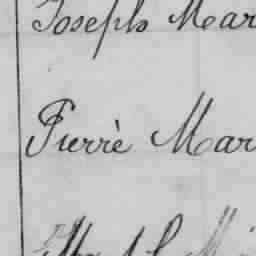 Joseph Mar
Pierrè Mar